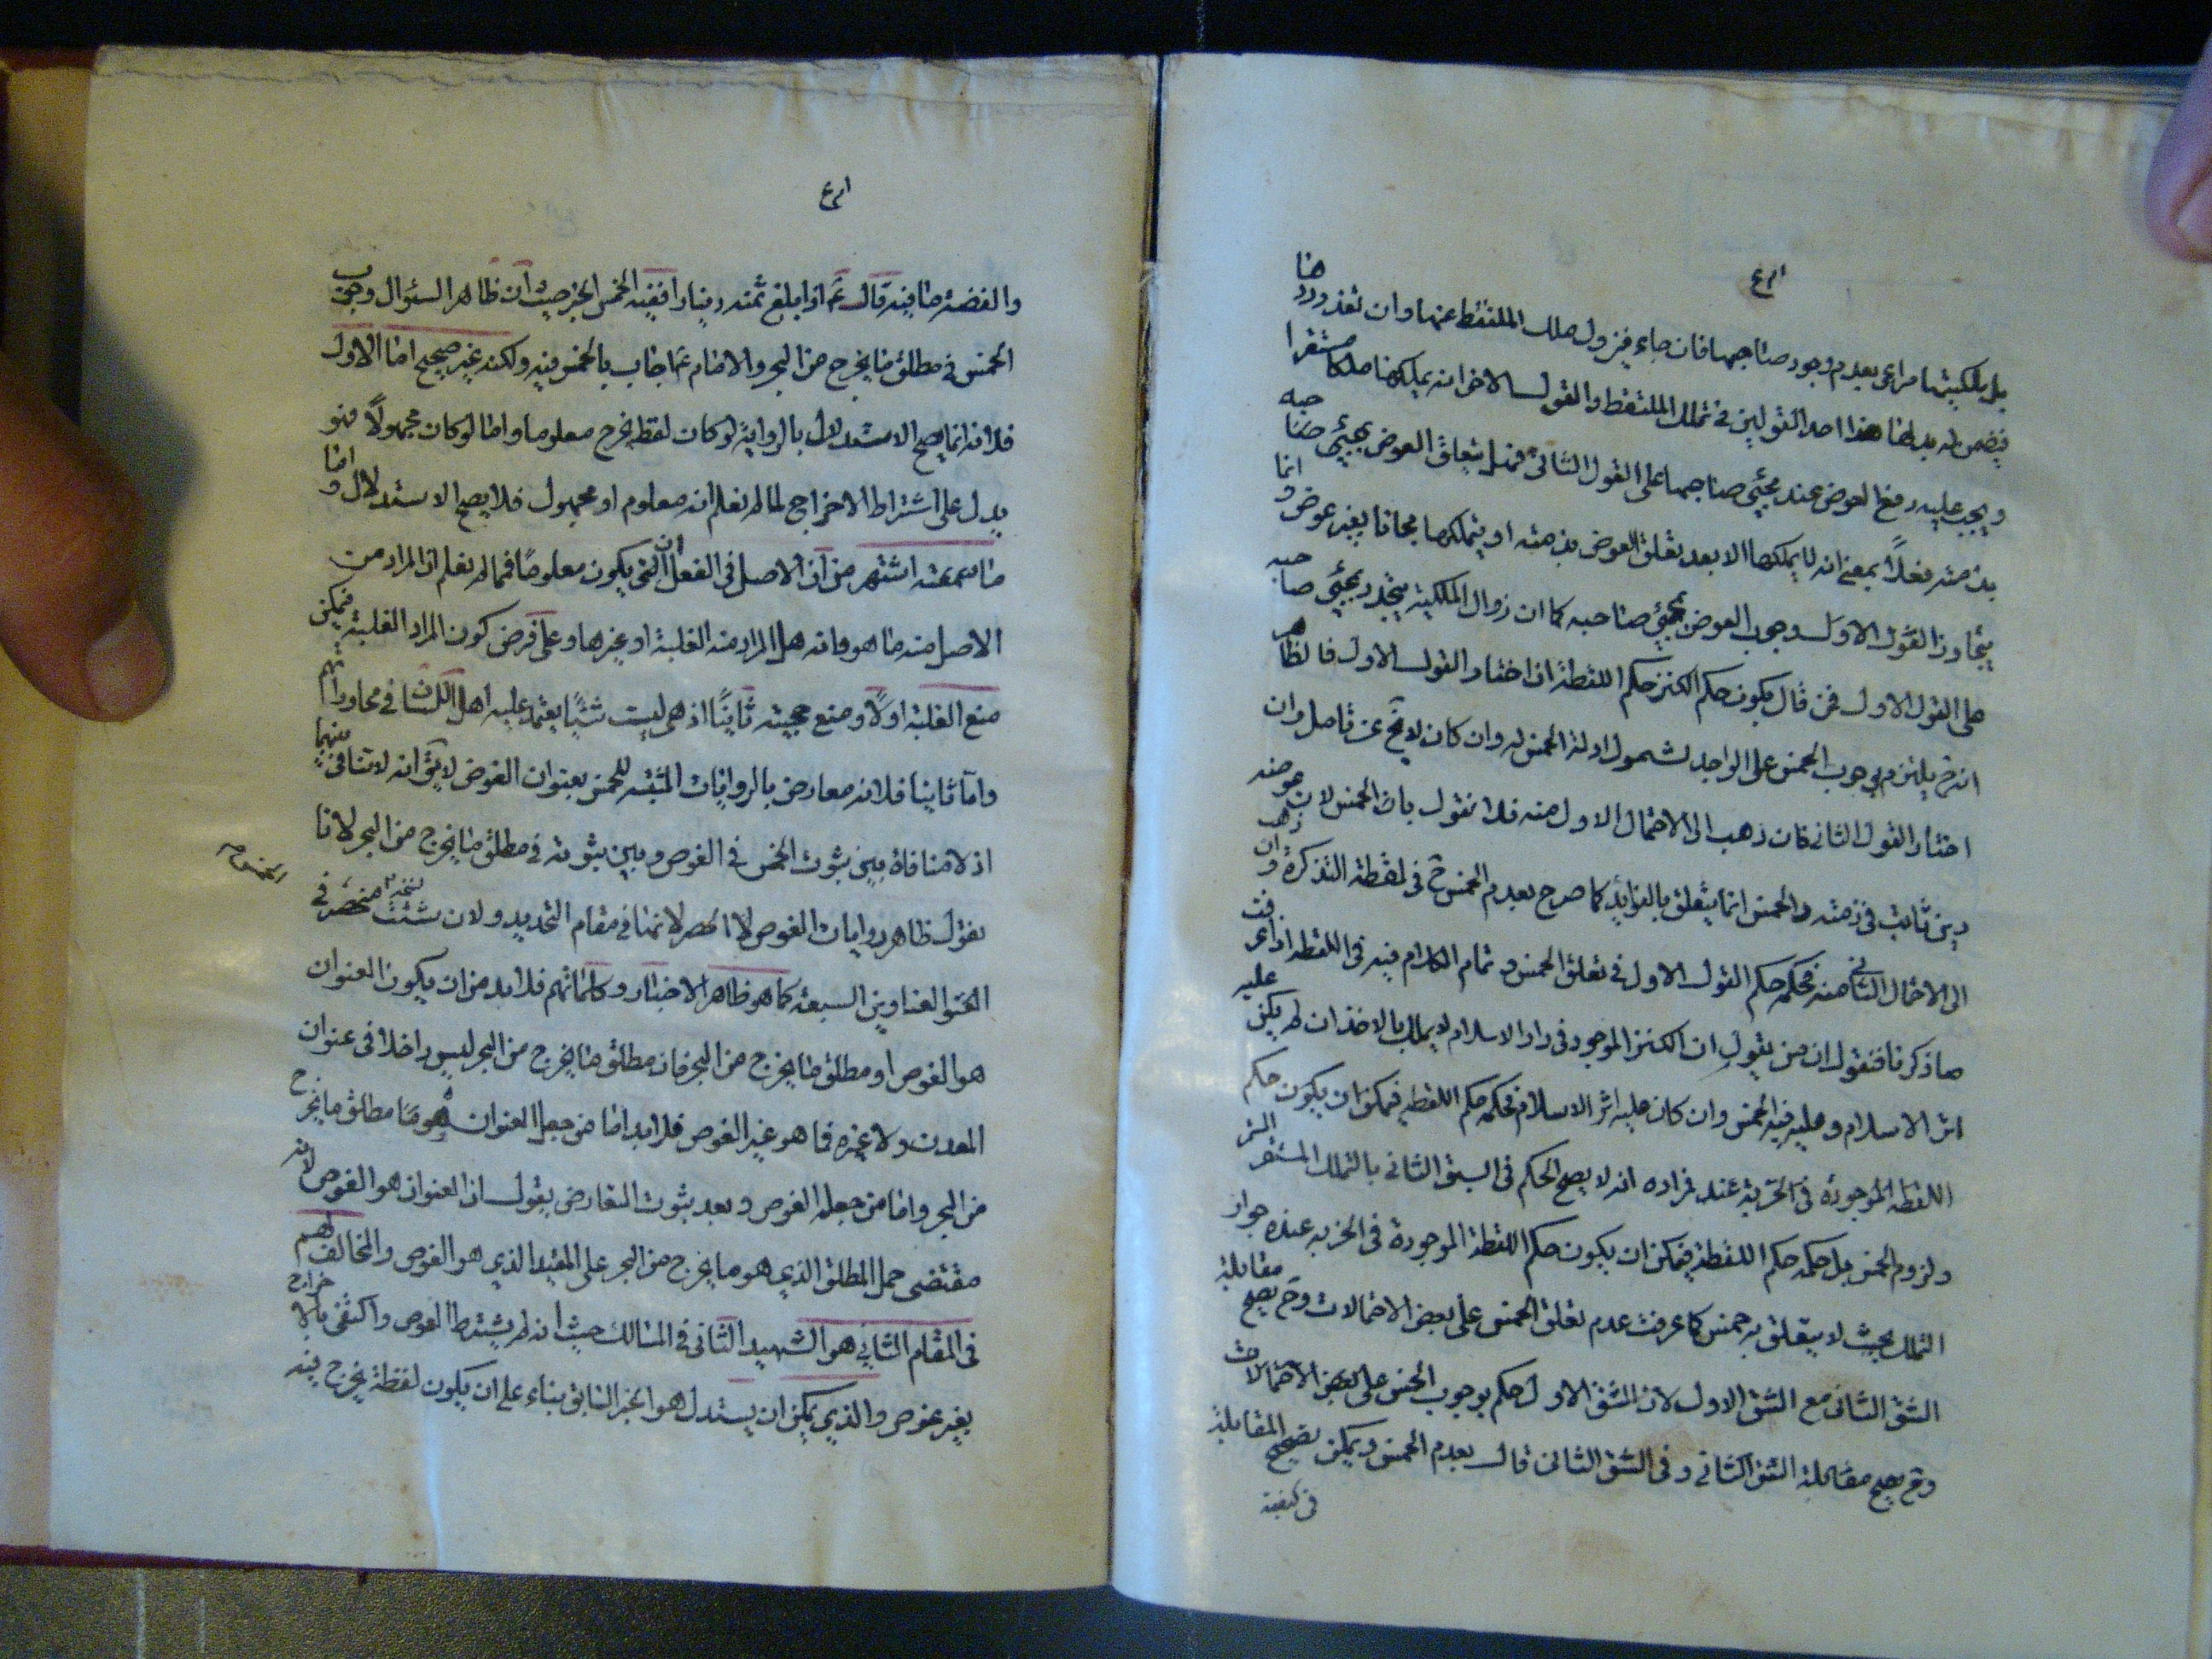 بل يملكيتها مراعى بعدم وجود صاحبها فان جاء فيزول ملك الملتقط عنها وان تعذر ردها
فيضمن له بدلها هذا احد القولين في تملك الملتقط والقول الاخر انه يملكها ملكا مستقرا
ويجب عليه دفع العوض عند مجيئ صاحبها على القول الثاني فهل يتعلق العوض بمجيئ صاحبه
بذمته فعلاً بمعنى انه لا يملكها الا بعد تعلق العوض بذمته او يتملكها مجانا بغير عوض وانما
القول الاول وجوب العوض بمجيئ صاحبه كما ان زوال الملكية بمجيئ صاحبه
على القول الاول فمن قال يكون حكم الكنز حكم اللقطة ان اختار القول الاول فالظاهر
انه ح يلتزم بوجوب الخمس على الواجد لشمول ادلة الخمس له وان كان لا يخ عن تامل وان
اختار القول الثاني فان ذهب الى الاحتمال الاول منه فلا نقول بان الخمس لان عوضه
دين ثابت في ذمته والخمس انما يتعلق بالفوائد كما صرح بعدم الخمس ح في لقطة التذكرة وان ذهب
الى الاحتمال الثاني منه فحكمه حكم القول الاول في تعلق الخمس وتمام الكلام فيه في اللقطه اذا عرفت
ما ذكرنا فنقول ان من يقول ان الكنز الموجود في دار الاسلام لا يملك بالاخذ ان لم يكن عليه
اثر الاسلام وعليه فيه الخمس وان كان عليه اثر الاسلام فحكمه حكم اللقطه فيمكن ان يكون حكم
اللقطه الموجودة في الخربة عنده مراده انه لا يصح الحكم في الشق الثاني بالتملك المستقر
ولزوم الخمس بل حكمه حكم اللقطة فيمكن ان يكون حكم اللقطة الموجودة في الخربه عنده جواز
التملك بحيث لا يتعلق به خمس كما عرفت عدم تعلق الخمس على بعض الاحتمالات وح يصح مقابلة
الشق الثاني مع الشق الاول لان الشق الاول حكم بوجوب الخمس على بعض الاحتمالات
وح يصح مقابلة الشق الثاني وفي الشق الثاني قال بعدم الخمس ويمكن تصحيح المقابلة
في كيفية
والفضة ما فيه قال ع اذا بلغ ثمنه دينارا ففيه الخمس الخبر حيث ان ظاهر السئوال وجوب
الخمس في مطلق ما يخرج من البحر والامام ع اجاب بالخمس فيه ولكنه غير صحيح اما الاول
فلانه انما يصح الاستدلال بالرواية لو كان لفظ يخرج معلوما واما لو كان مجهولاً فهو
يدل على اشتراط الاخراج لما لم نعلم انه معلوم او مجهول فلا يصح الاستدلال واما
ما سمعته اشتهر من ان الاصل في الفعل ان يكون معلوماً فمما لم نعلم ان المراد من
الاصل منه ما هو فانه هل المراد منه الغلبة او غيرها وعلى فرض كون المراد الغلبة فيمكن
منع الغلبة اولاً ومنع حجيته ثانياً اذ هي ليست شيئاً يعتمد عليه اهل اللسان في محاوراتهم
واما ثانيا فلانه معارض بالروايات المثبتة للخمس بعنوان الغوص لا يق انه لا تنافي بينهما
اذ لا منافاة بين ثبوت الخمس في الغوص وبين ثبوته في مطلق ما يخرج من البحر لانا
نقول ظاهر روايات الغوص الحصر لانها في مقام التحديد ولان منحصر في
العناوين السبعة كما هو ظاهر الاخبار وكلماتهم فلا بد من ان يكون العنوان
هو الغوص او مطلق ما يخرج من البحر فان مطلق ما يخرج من البحر ليس داخلا في عنوان
المعدن ولا غيره فما هو غير الغوص فلا بد اما من جعل العنوان هو مطلق ما يخرج
من البحر واما من جعله الغوص وبعد ثبوت التعارض يقول ان العنوان هو الغوص لانه
مقتضى حمل المطلق الذي هو ما يخرج من البحر على المقيد الذي هو الغوص والمخالف لهم
في المقام الثاني هو الشهيد الثاني في المسالك حيث انه لم يشترط الغوص واكتفى بالاخراج
بغير غوص والذي يمكن ان يستدل هو الخبر السابق بناء على ان يكون لفظة يخرج فيه